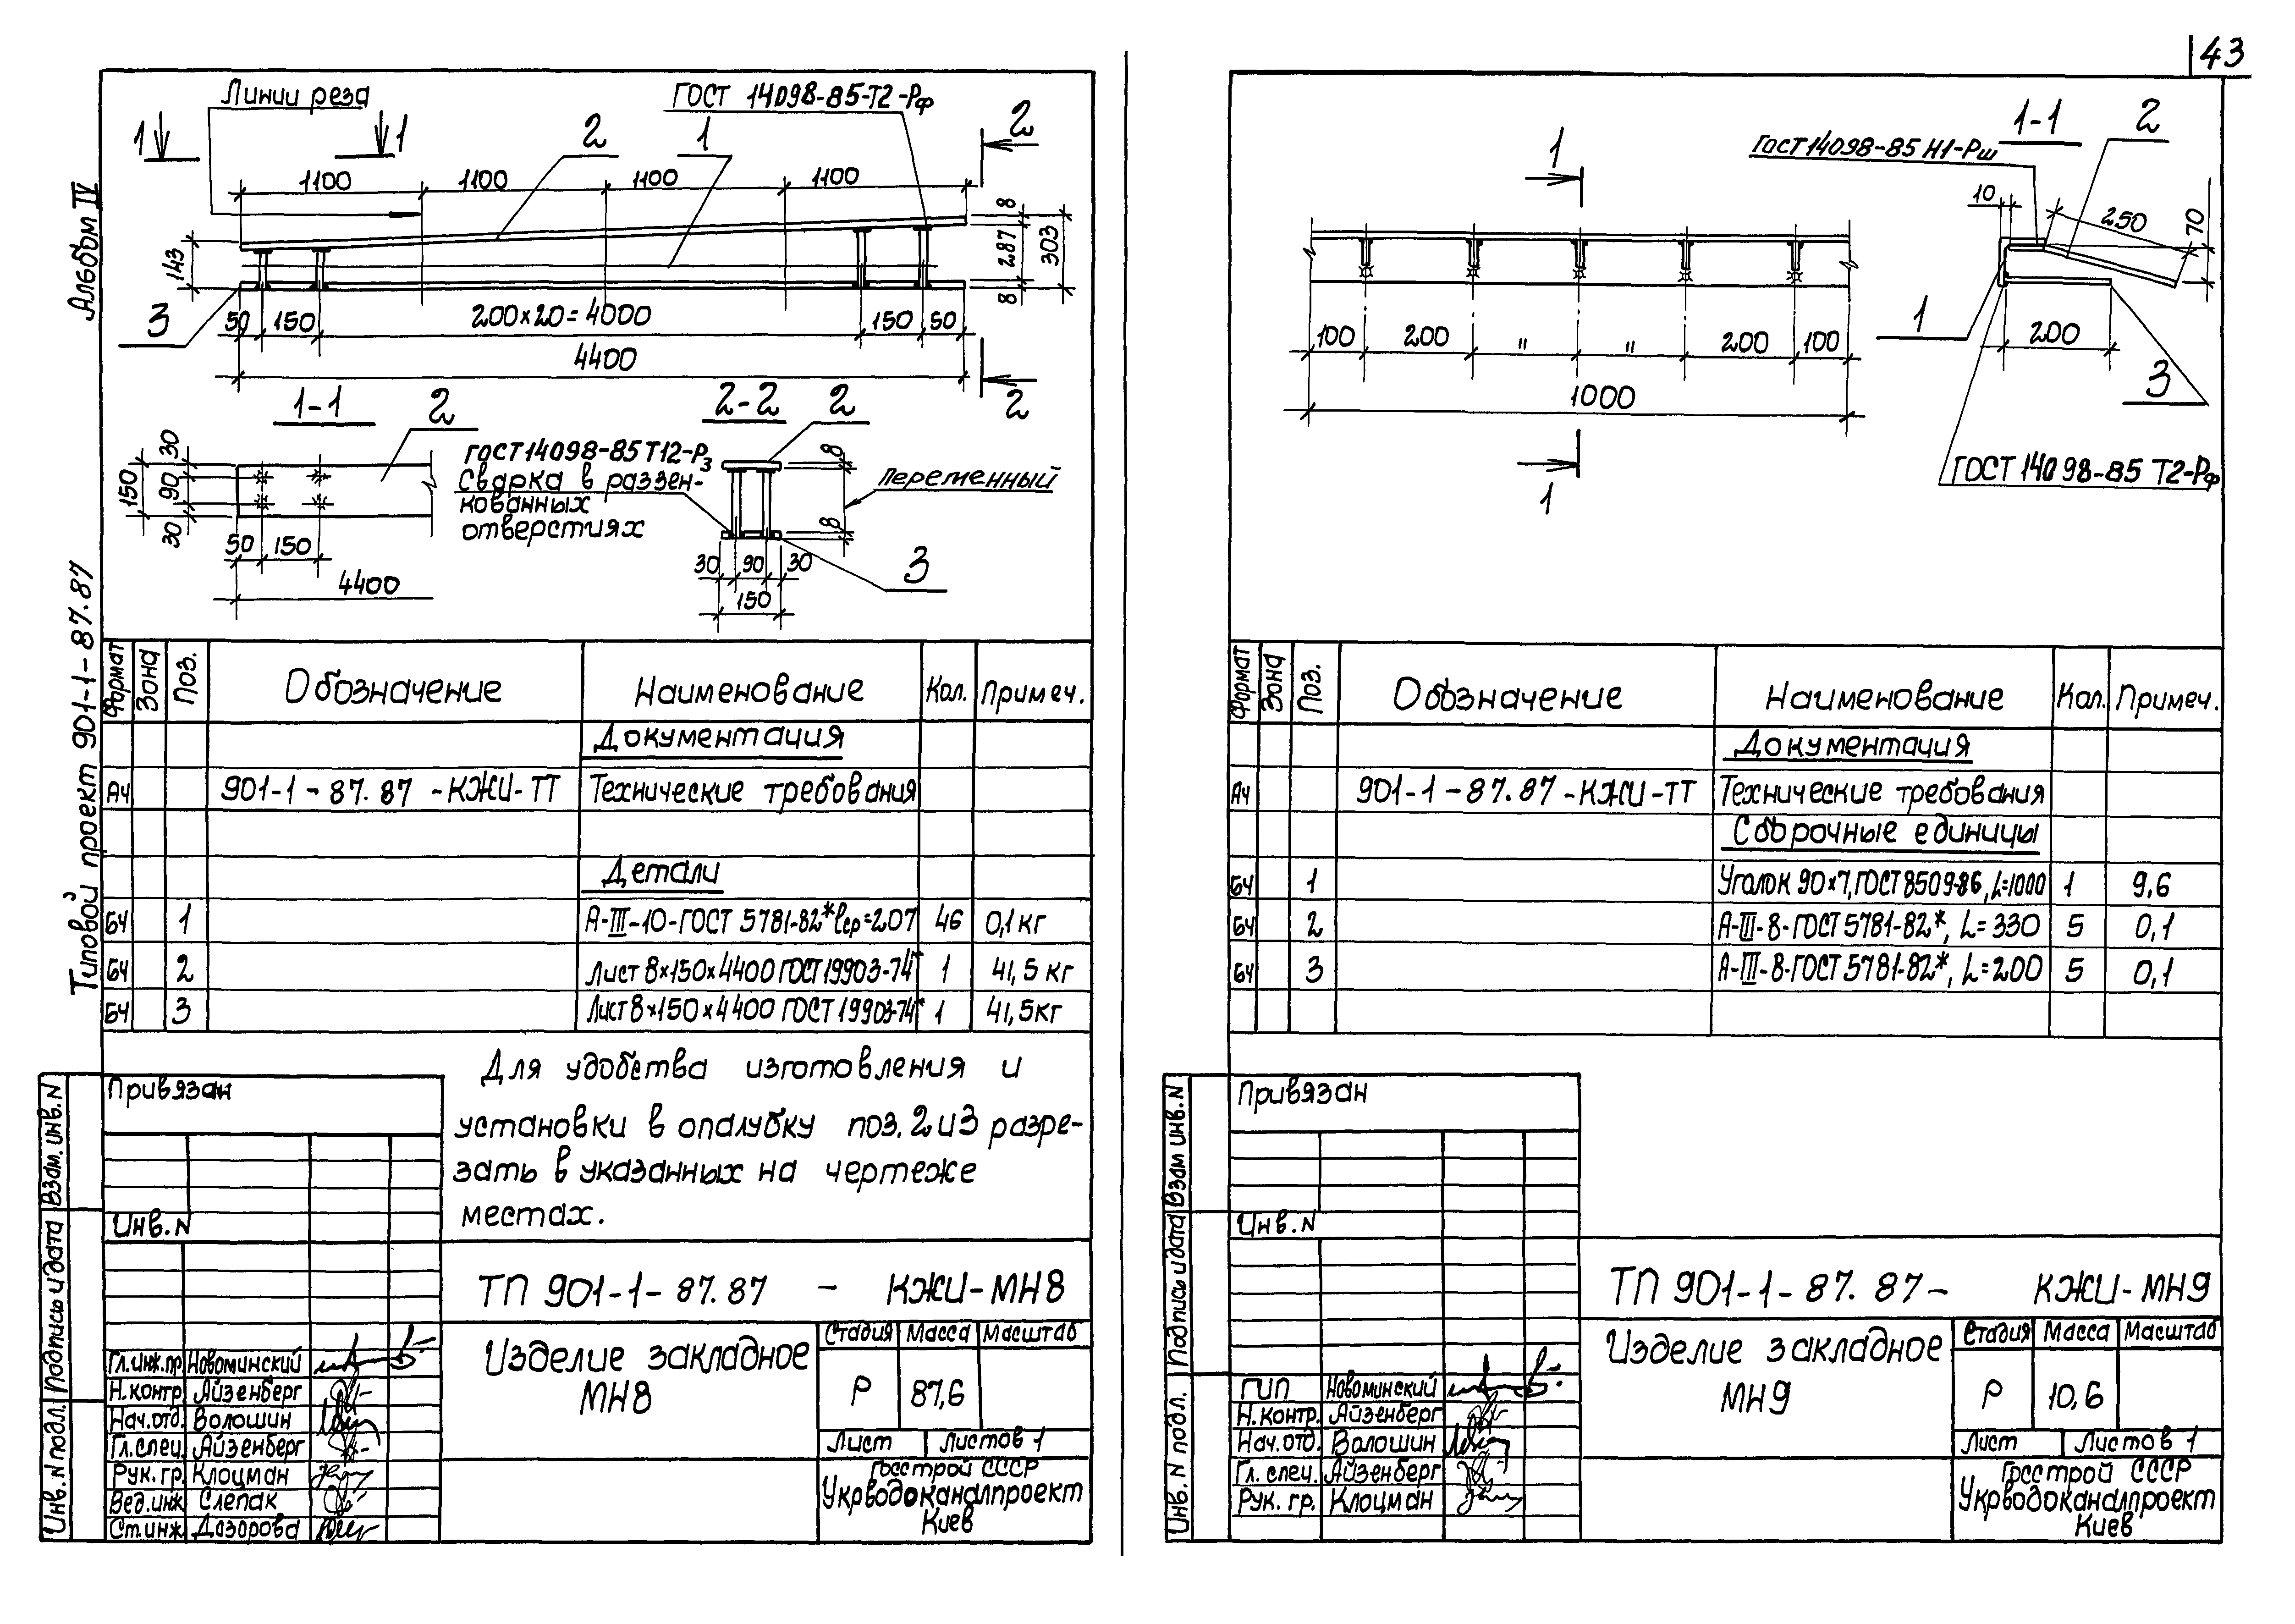 43
Альбом IV
Типовой проект 901-1-87.87
Линии реза
ГОСТ 14098-85-Т2-Рф
1 1 2 1 2
1100 1100 1100 1100
143
8 287 8 303
3
50 150 200×20=4000 150 50
4400
2
1-1 2
30 90 30 150
50 150
4400
ГОСТ14098-85 Т12-Рз
Сварка в раззен-
кованных
отверстиях
2-2 2
8
переменный
8
30 90 30
150
3
Формат Зона Поз. Обозначение Наименование Кол. Примеч.
Документация
А4 901-1-87.87-КЖИ-ТТ Технические требования
Детали
БЧ 1 А-III-10-ГОСТ 5781-82* ℓср=207 46 0,1кг
БЧ 2 Лист 8×150×4400 ГОСТ 19903-74* 1 41,5 кг
БЧ 3 Лист 8×150×4400 ГОСТ 19903-74* 1 41,5кг
Для удобства изготовления и
установки в опалубку поз. 2 и 3 разре-
зать в указанных на чертеже
местах.
Привязан
Инв.N
Взам. инв. N
Подпись и дата
Инв. N подл.
ТП 901-1-87.87 - КЖИ-МН8
Гл.инж.пр Новоминский
Н.контр. Айзенберг
Нач.отд. Волошин
Гл.спец. Айзенберг
Рук. гр. Клоцман
Вед.инж Слепак
Ст.инж. Дозорова
Изделие закладное
МН8
Стадия Масса Масштаб
Р 87,6
Лист Листов 1
Госстрой СССР
Укрводоканалпроект
Киев
1
100 200 " " 200 100
1000
1
1-1
ГОСТ14098-85 Н1-Рш
2
10 250 70
1
200
3
ГОСТ 14098-85 Т2-Рф
Формат Зона Поз. Обозначение Наименование Кол. Примеч.
Документация
А4 901-1-87.87-КЖИ-ТТ Технические требования
Сборочные единицы
БЧ 1 Уголок 90×7, ГОСТ 8509-86, L=1000 1 9,6
БЧ 2 А-III-8-ГОСТ 5781-82*, L=330 5 0,1
БЧ 3 А-III-8-ГОСТ 5781-82*, L=200 5 0,1
Привязан
Инв. N
Взам инв. N
Подпись и дата
Инв. N подл.
ТП 901-1-87.87- КЖИ-МН9
ГИП Новоминский
Н.контр. Айзенберг
Нач.отд. Волошин
Гл. спец. Айзенберг
Рук. гр. Клоцман
Изделие закладное
МН9
Стадия Масса Масштаб
Р 10,6
Лист Листов 1
Госстрой СССР
Укрводоканалпроект
Киев